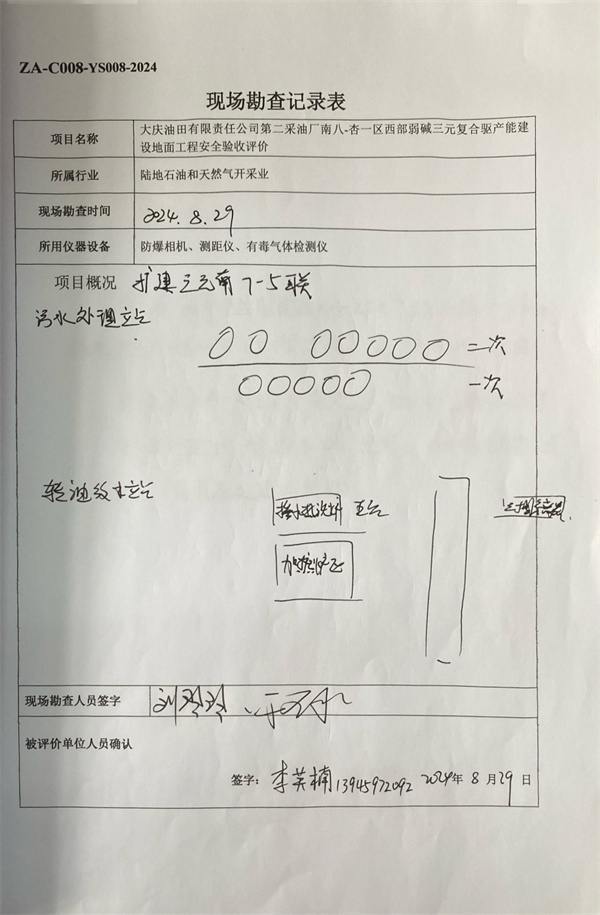 ZA-C008-YS008-2024
现场勘查记录表
项目名称 大庆油田有限责任公司第二采油厂南八-杏一区西部弱碱三元复合驱产能建
设地面工程安全验收评价
所属行业 陆地石油和天然气开采业
现场勘查时间 2024.8.29
所用仪器设备 防爆相机、测距仪、有毒气体检测仪
项目概况 扩建三元南7-5联
污水处理站
二次
一次
转油放水站
加热炉区
现场勘查人员签字 刘玲玲
被评价单位人员确认
签字：李英楠 13945972092 2024年8月29日